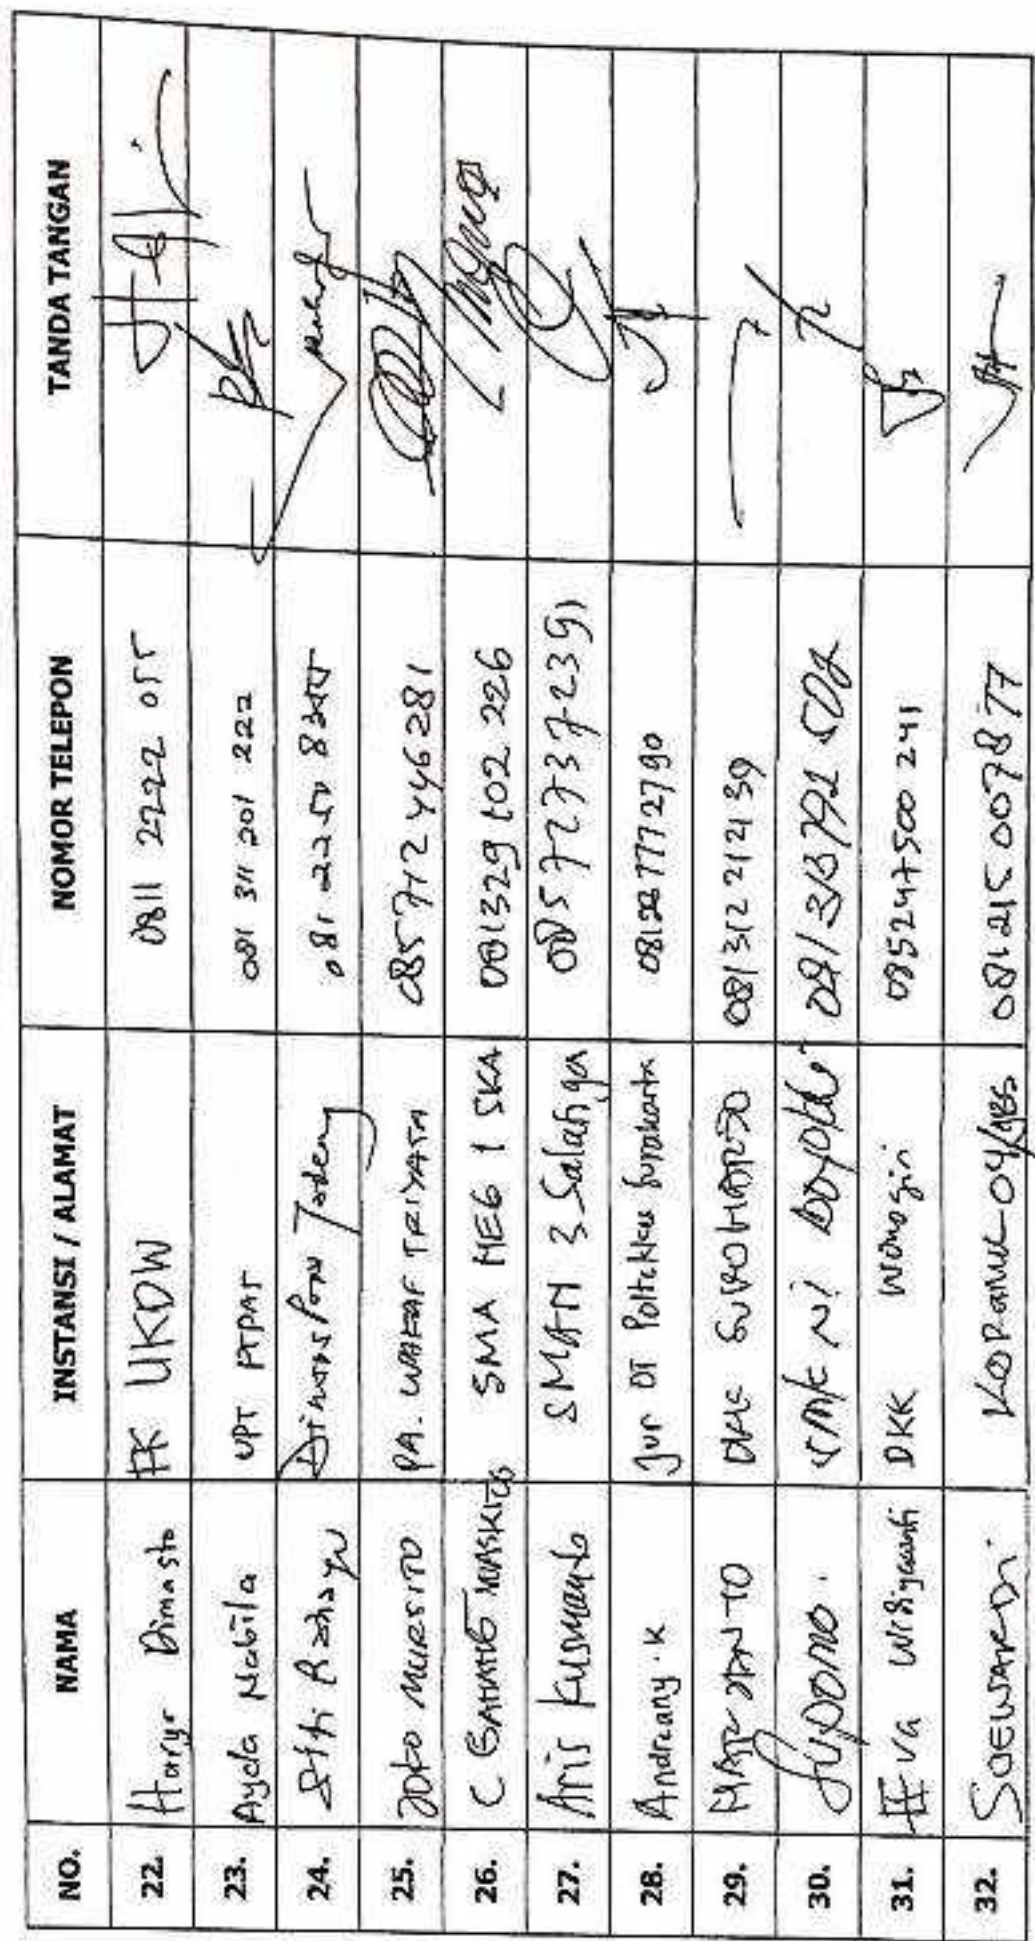 NO. NAMA INSTANSI / ALAMAT NOMOR TELEPON TANDA TANGAN
22. Haryo Dimasto FK UKDW 0811 2222 055
23. Ayda Nabila UPT PTPAT 081 311 201 222
24. Sitti Rahayu
25. Joko MURSITO PA. WAKAF TRIYATA 085712446281
26. C SMA NEG 1 SKA 081329 602 226
27. Aris Kusmanto SMAN 3 Salatiga 085727372391
28. Andreany. K Jur OT Poltekkes Surakarta 081227772790
29. MARYANTO DKK SUKOHARJO 081312212139
30. Suyono. SMK N 1 Boyolali
31. Eva Widiyanti DKK Wonogiri 085247500241
32. SOEWARDI 081215007877